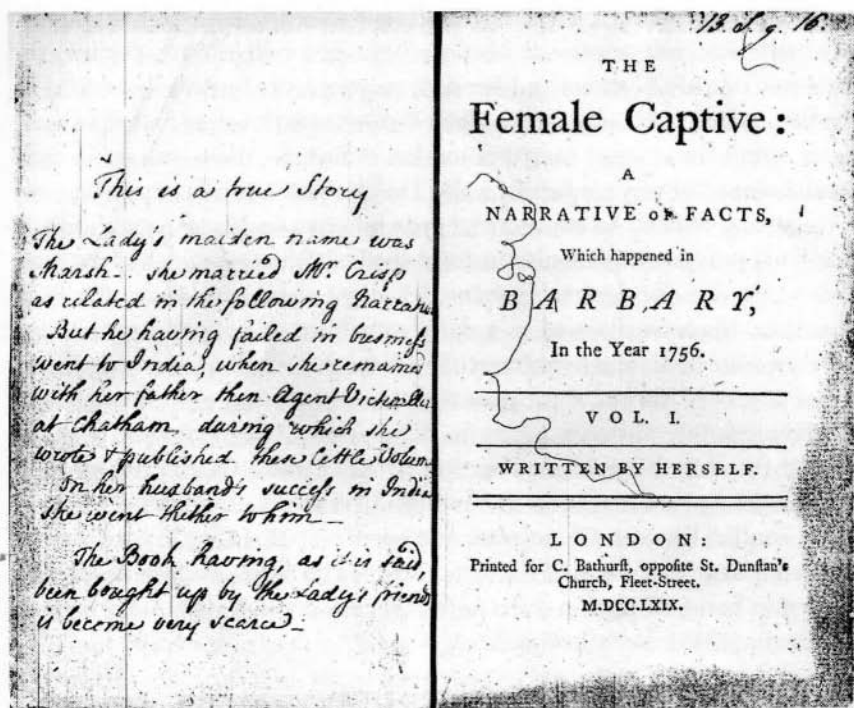 This is a true Story
The Lady's maiden name was
Marsh - she married Mr. Crisp
as related in the following
But he having failed in business
went to India, when she remained
with her father then Agent
at Chatham, during which she
wrote & published these Little
On her husband's success in India
she went thither to him —
The Book having, as it is said,
been bought up by the Lady's friends
is become very scarce —
THE
Female Captive:
A
NARRATIVE OF FACTS,
Which happened in
BARBARY,
In the Year 1756.
VOL. I.
WRITTEN BY HERSELF.
LONDON:
Printed for C. Bathurst, opposite St. Dunstan's
Church, Fleet-Street.
M.DCC.LXIX.